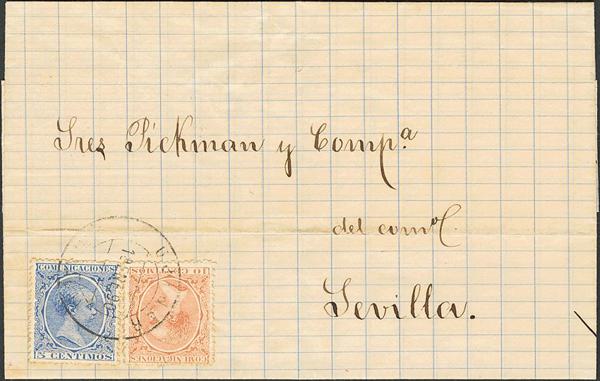 Sres Pickman y Comp.ª
del com.º
Sevilla.
COMUNICACIONES
5 CENTIMOS
COMUNICACIONES
10 CENTIMOS